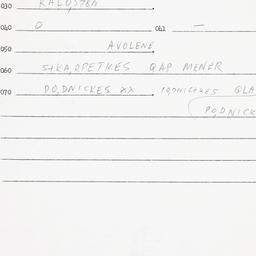 030 KALO,STBA
040 O 041 —
050 AVOLENE
060 5+KA,RPETKES QAP MENER
070 PO,DNICKES XX PO,DNICKKES QLA
PO,DNICK